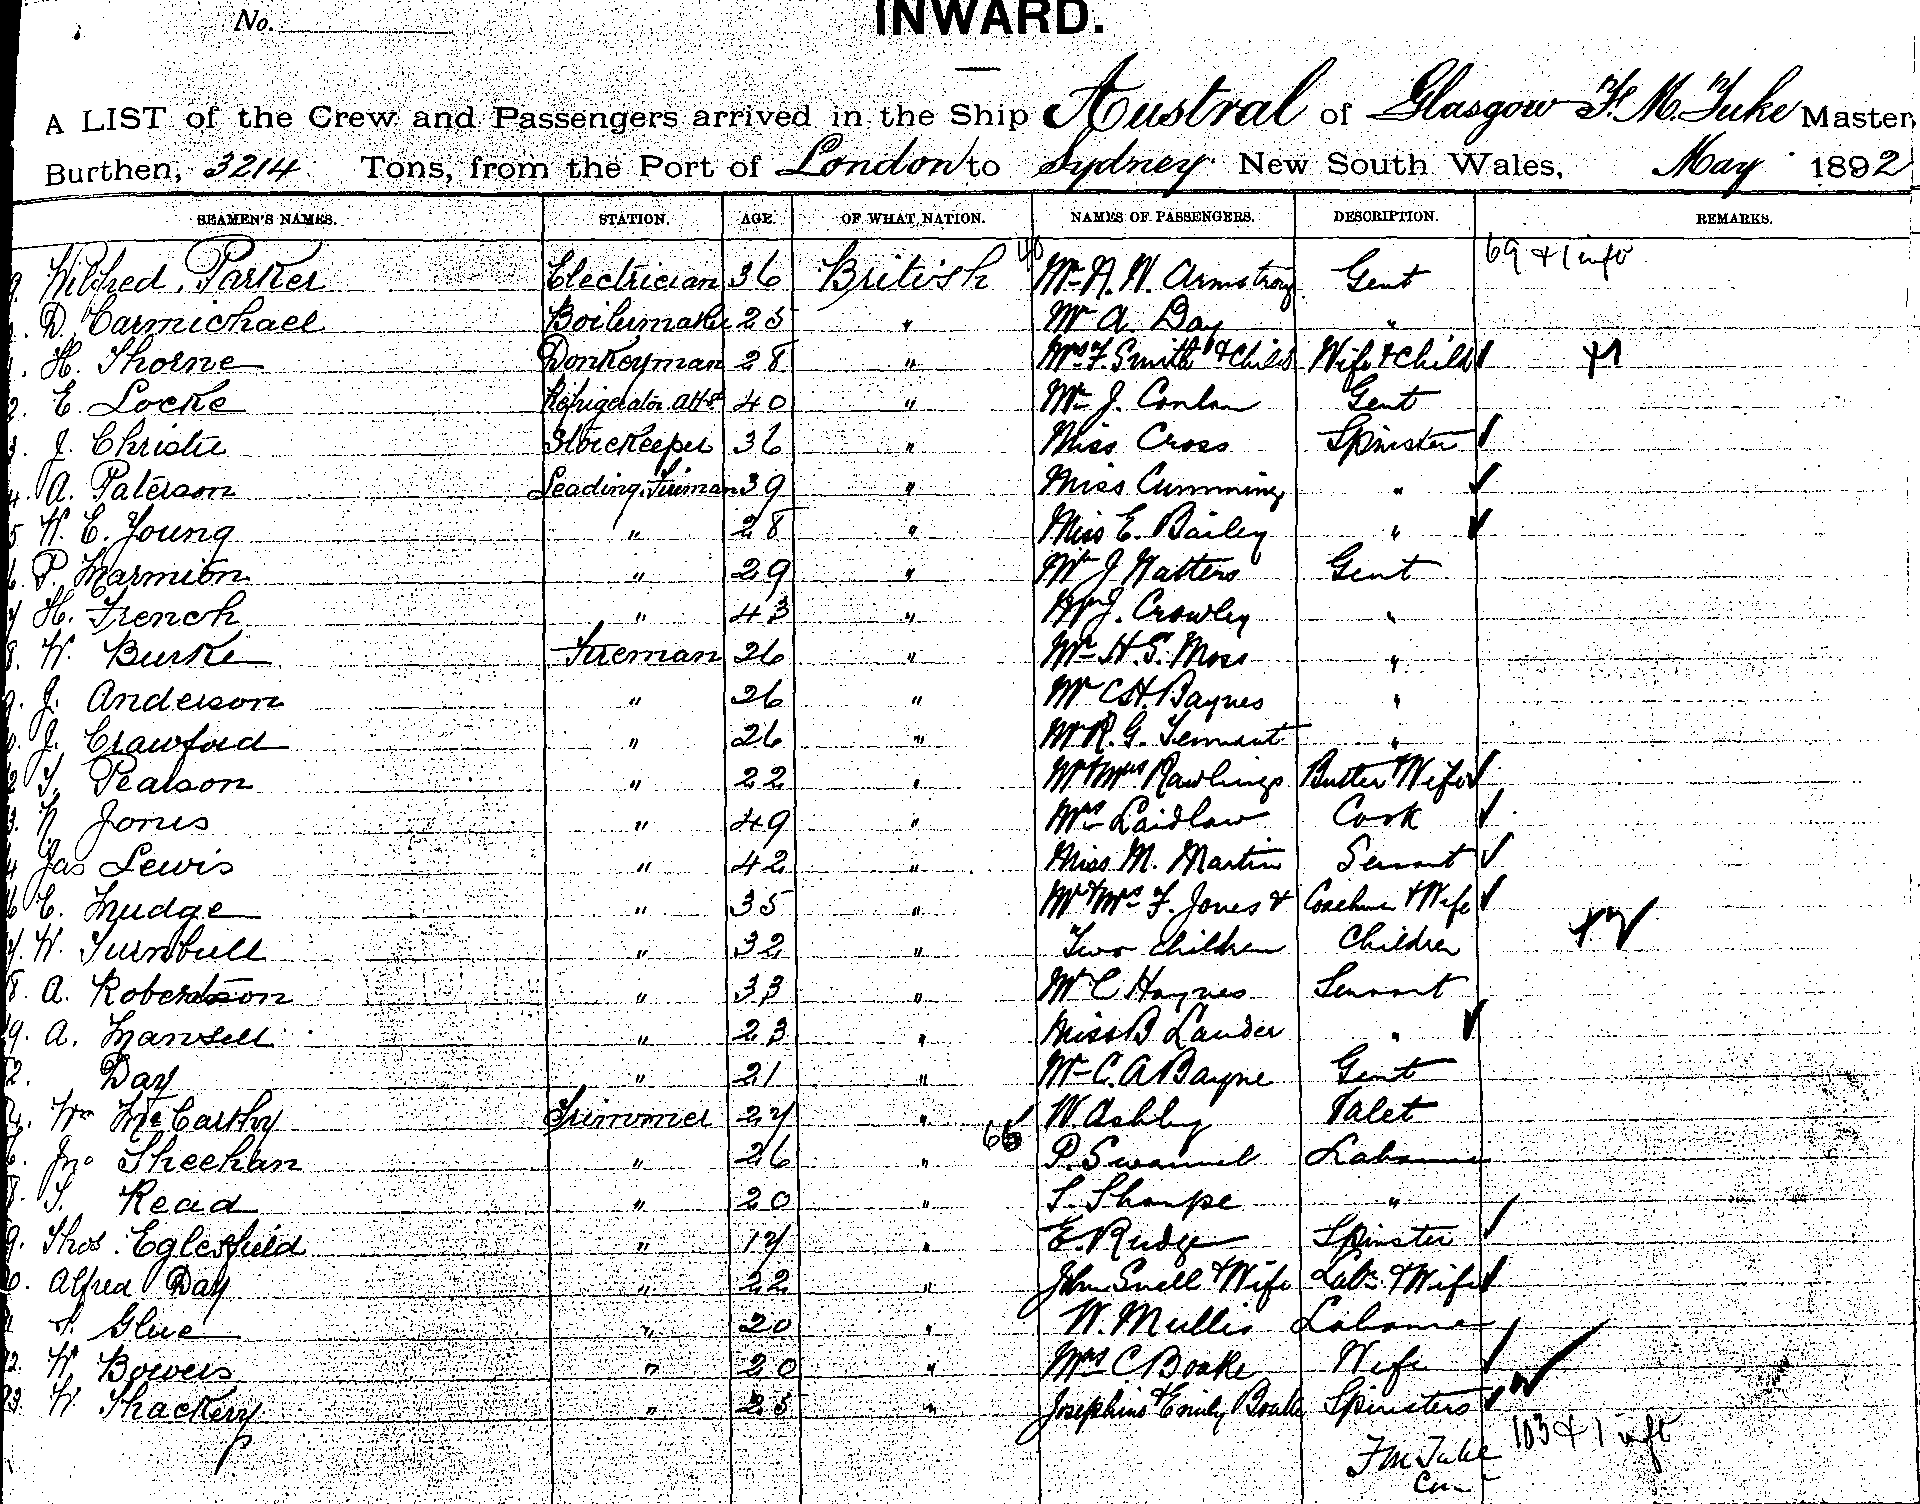 No.
INWARD.
A LIST of the Crew and Passengers arrived in the Ship Austral of Glasgow F. M. Tuke Master,
Burthen, 3214 Tons, from the Port of London to Sydney New South Wales, May 1892
SEAMEN'S NAMES. STATION. AGE. OF WHAT NATION. NAMES OF PASSENGERS. DESCRIPTION. REMARKS.
69 & 1 inft
Wilfred Parker Electrician 36 British Mr A. W. Armstrong Gent
D. Carmichael Boilermaker 25 " Mr A. Day "
H. Thorne Donkeyman 28 " Mrs F. Smith & Child Wife & Child
E. Locke Refrigerator Att 40 " Mr J. Conlan Gent
J. Christie Storekeeper 36 " Miss Cross Spinster
A. Paterson Leading Fireman 39 " Miss Cumming "
W. E. Young " 28 " Miss E. Bailey "
P. Marmion " 29 " Mr J Watters Gent
H. French " 43 " Mr J. Crowley "
W. Burke Fireman 26 " Mr H. S. Moss "
J. Anderson " 26 " Mr C H. Baynes "
J. Crawford " 26 " Mr R. G. Tennant "
T. Pearson " 22 " Mr & Mrs Rawlings Butler & Wife
N Jones " 49 " Mrs Laidlaw Cook
Jas Lewis " 42 " Miss M. Martin Servant
C. Mudge " 35 " Mr & Mrs F. Jones & Coachman & Wife
W. Turnbull " 32 " Two children Children
A. Robertson " 33 " Mr C Haynes Servant
A. Mansell " 23 " Miss B Lauder "
Day " 21 " Mr C. A Bayne Gent
Wm McCarthy Trimmer 27 " W. Ashby Valet
Jno Sheehan " 26 " P. Swannel Labourer
T. Read " 20 " S. Sharpe "
Thos. Eglesfield " 17 " E. Rudge Spinster
Alfred Day " 22 " John Snell & Wife Labr & Wife
S. Glue " 20 " W. Mullis Labourer
W Bowers " 20 " Mrs C Boake Wife
W Thackery " 25 " Josephine & Emily Boake Spinsters
103 & 1 inft
F M Tuke
Com